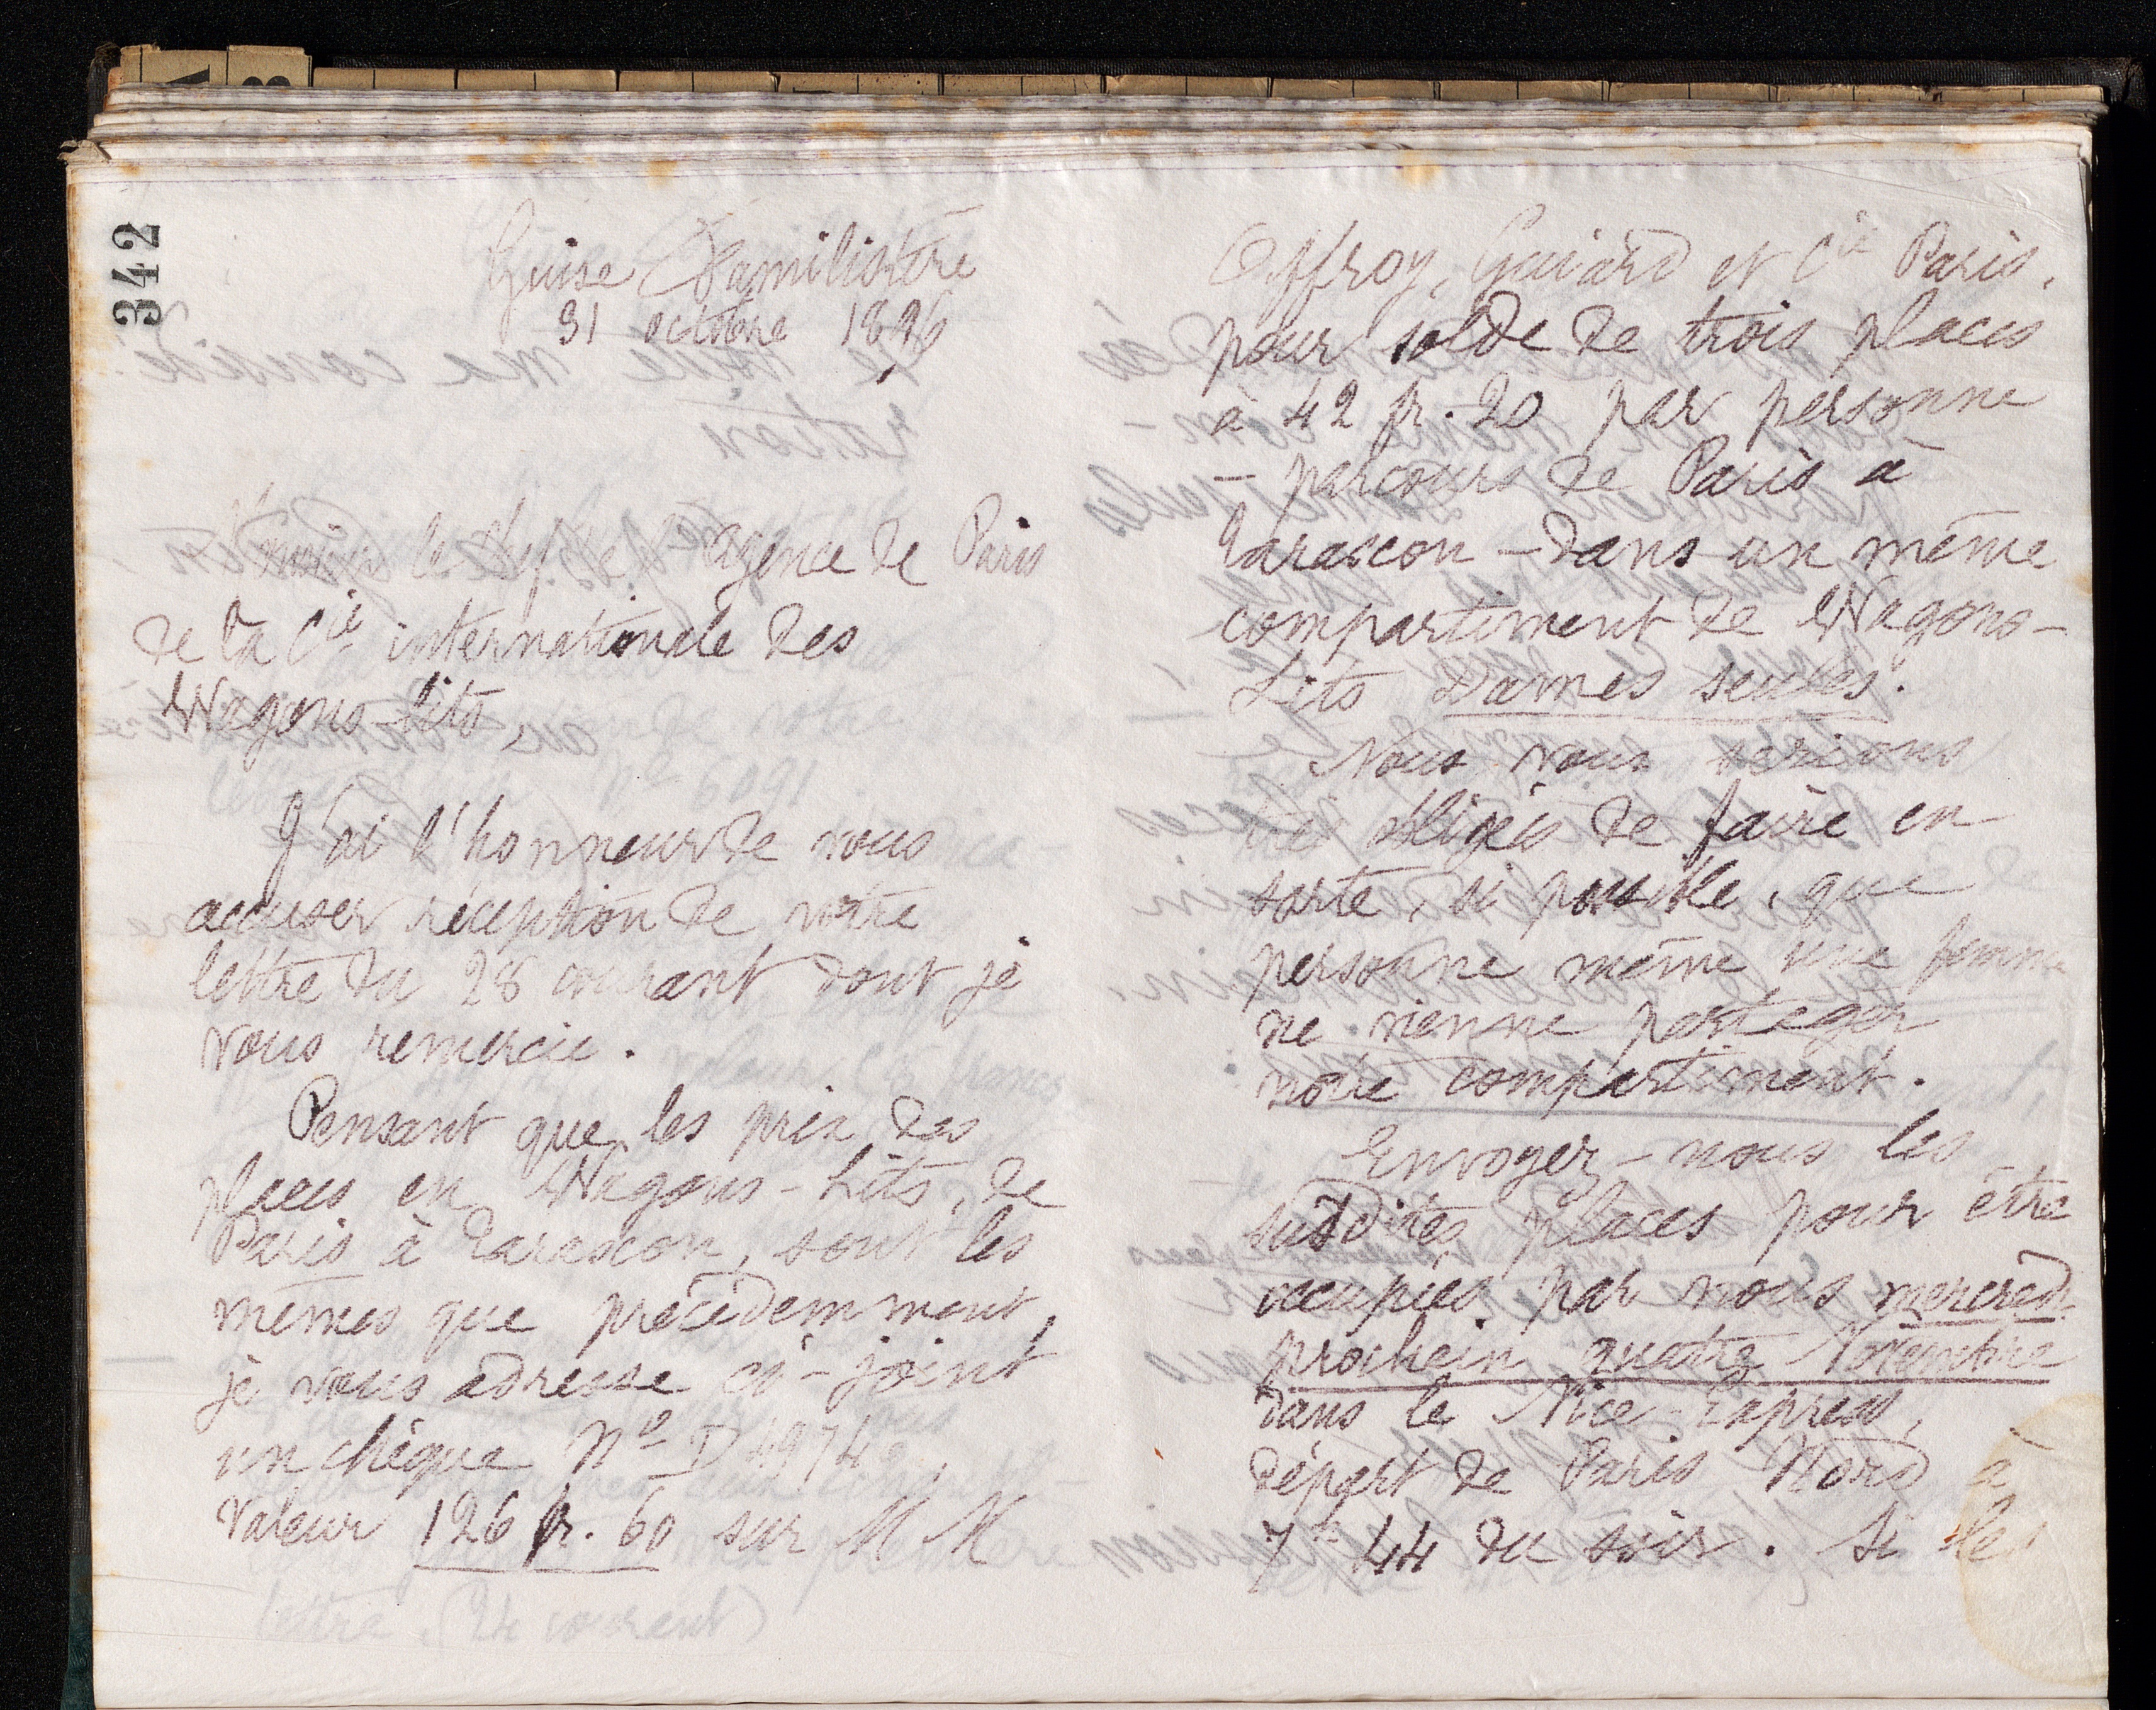 342
Guise Familistère
31 octobre 1896
Monsieur le Chef de l'agence de Paris
de la Cie internationale des
Wagons-Lits,
J'ai l'honneur de vous
accuser réception de votre
lettre du 28 courant dont je
vous remercie.
Pensant que les prix des
places en Wagons-Lits, de
Paris à Tarascon, sont les
mêmes que précédemment,
je vous adresse ci-joint
un chèque No
Valeur 126 fr. 60 sur M M
Offroy, Guiard et Cie Paris,
pour solde de trois places
à 42 fr. 20 par personne
– parcours de Paris à
Tarascon – dans un même
compartiment de Wagons-
Lits Dames seules.
Nous vous serions
très obligés de faire en
sorte, si possible, que
personne même une femme
ne vienne partager
notre compartiment.
Envoyez-nous les
susdites places pour être
occupées par nous mercredi
prochain quatre Novembre
dans le Nice-Express,
départ de Paris Nord à
7h 44 du soir. Si les